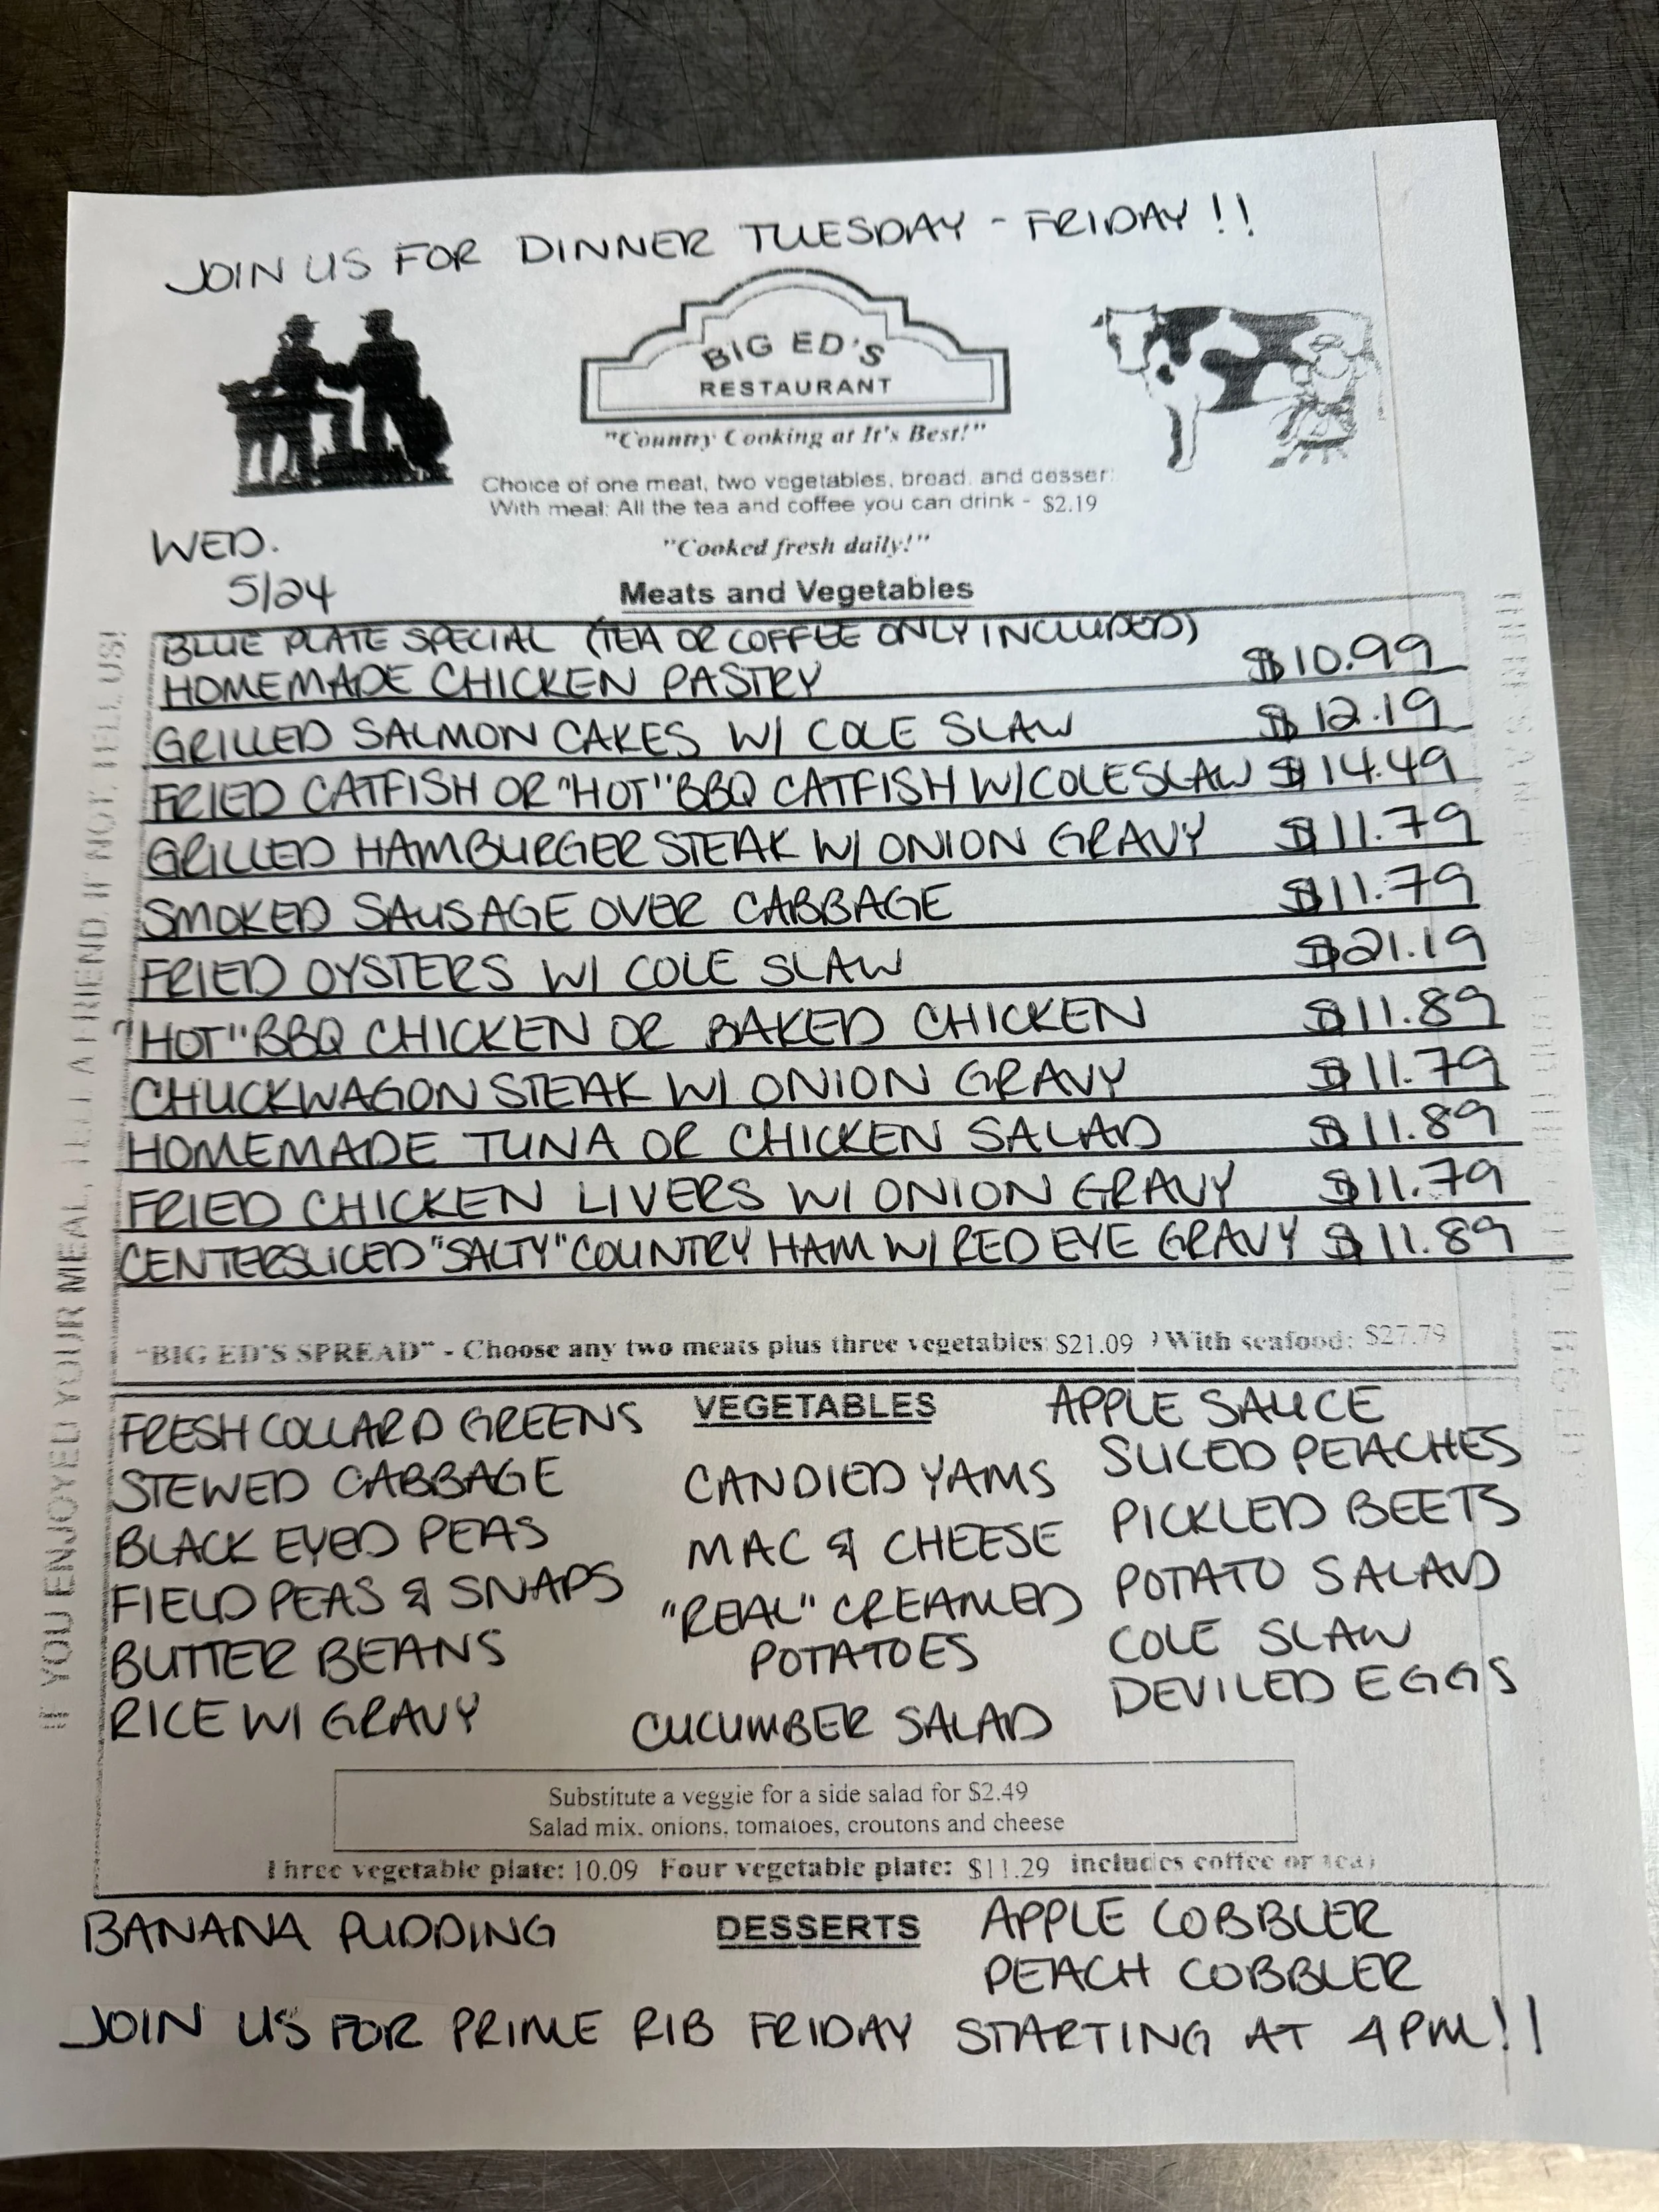 JOIN US FOR DINNER TUESDAY - FRIDAY!!
BIG ED'S
RESTAURANT
"Country Cooking at It's Best!"
Choice of one meat, two vegetables, bread, and desser
With meal: All the tea and coffee you can drink - $2.19
"Cooked fresh daily!"
WED.
5/24
Meats and Vegetables
BLUE PLATE SPECIAL (TEA OR COFFEE ONLY INCLUDED)
HOMEMADE CHICKEN PASTRY $10.99
GRILLED SALMON CAKES W/ COLE SLAW $12.19
FRIED CATFISH OR "HOT" BBQ CATFISH W/ COLE SLAW $14.49
GRILLED HAMBURGER STEAK W/ ONION GRAVY $11.79
SMOKED SAUSAGE OVER CABBAGE $11.79
FRIED OYSTERS W/ COLE SLAW $21.19
"HOT" BBQ CHICKEN OR BAKED CHICKEN $11.89
CHUCKWAGON STEAK W/ ONION GRAVY $11.79
HOMEMADE TUNA OR CHICKEN SALAD $11.89
FRIED CHICKEN LIVERS W/ ONION GRAVY $11.79
CENTERSLICED "SALTY" COUNTRY HAM W/ RED EYE GRAVY $11.89
"BIG ED'S SPREAD" - Choose any two meats plus three vegetables: $21.09 ) With seafood: $27.79
IF YOU ENJOYED YOUR MEAL, TELL A FRIEND. IF NOT, TELL US!
VEGETABLES
FRESH COLLARD GREENS
STEWED CABBAGE
BLACK EYED PEAS
FIELD PEAS & SNAPS
BUTTER BEANS
RICE W/ GRAVY
CANDIED YAMS
MAC & CHEESE
"REAL" CREAMED
POTATOES
CUCUMBER SALAD
APPLE SAUCE
SLICED PEACHES
PICKLED BEETS
POTATO SALAD
COLE SLAW
DEVILED EGGS
Substitute a veggie for a side salad for $2.49
Salad mix, onions, tomatoes, croutons and cheese
Three vegetable plate: 10.09 Four vegetable plate: $11.29 includes coffee or tea)
DESSERTS
BANANA PUDDING
APPLE COBBLER
PEACH COBBLER
JOIN US FOR PRIME RIB FRIDAY STARTING AT 4PM!!